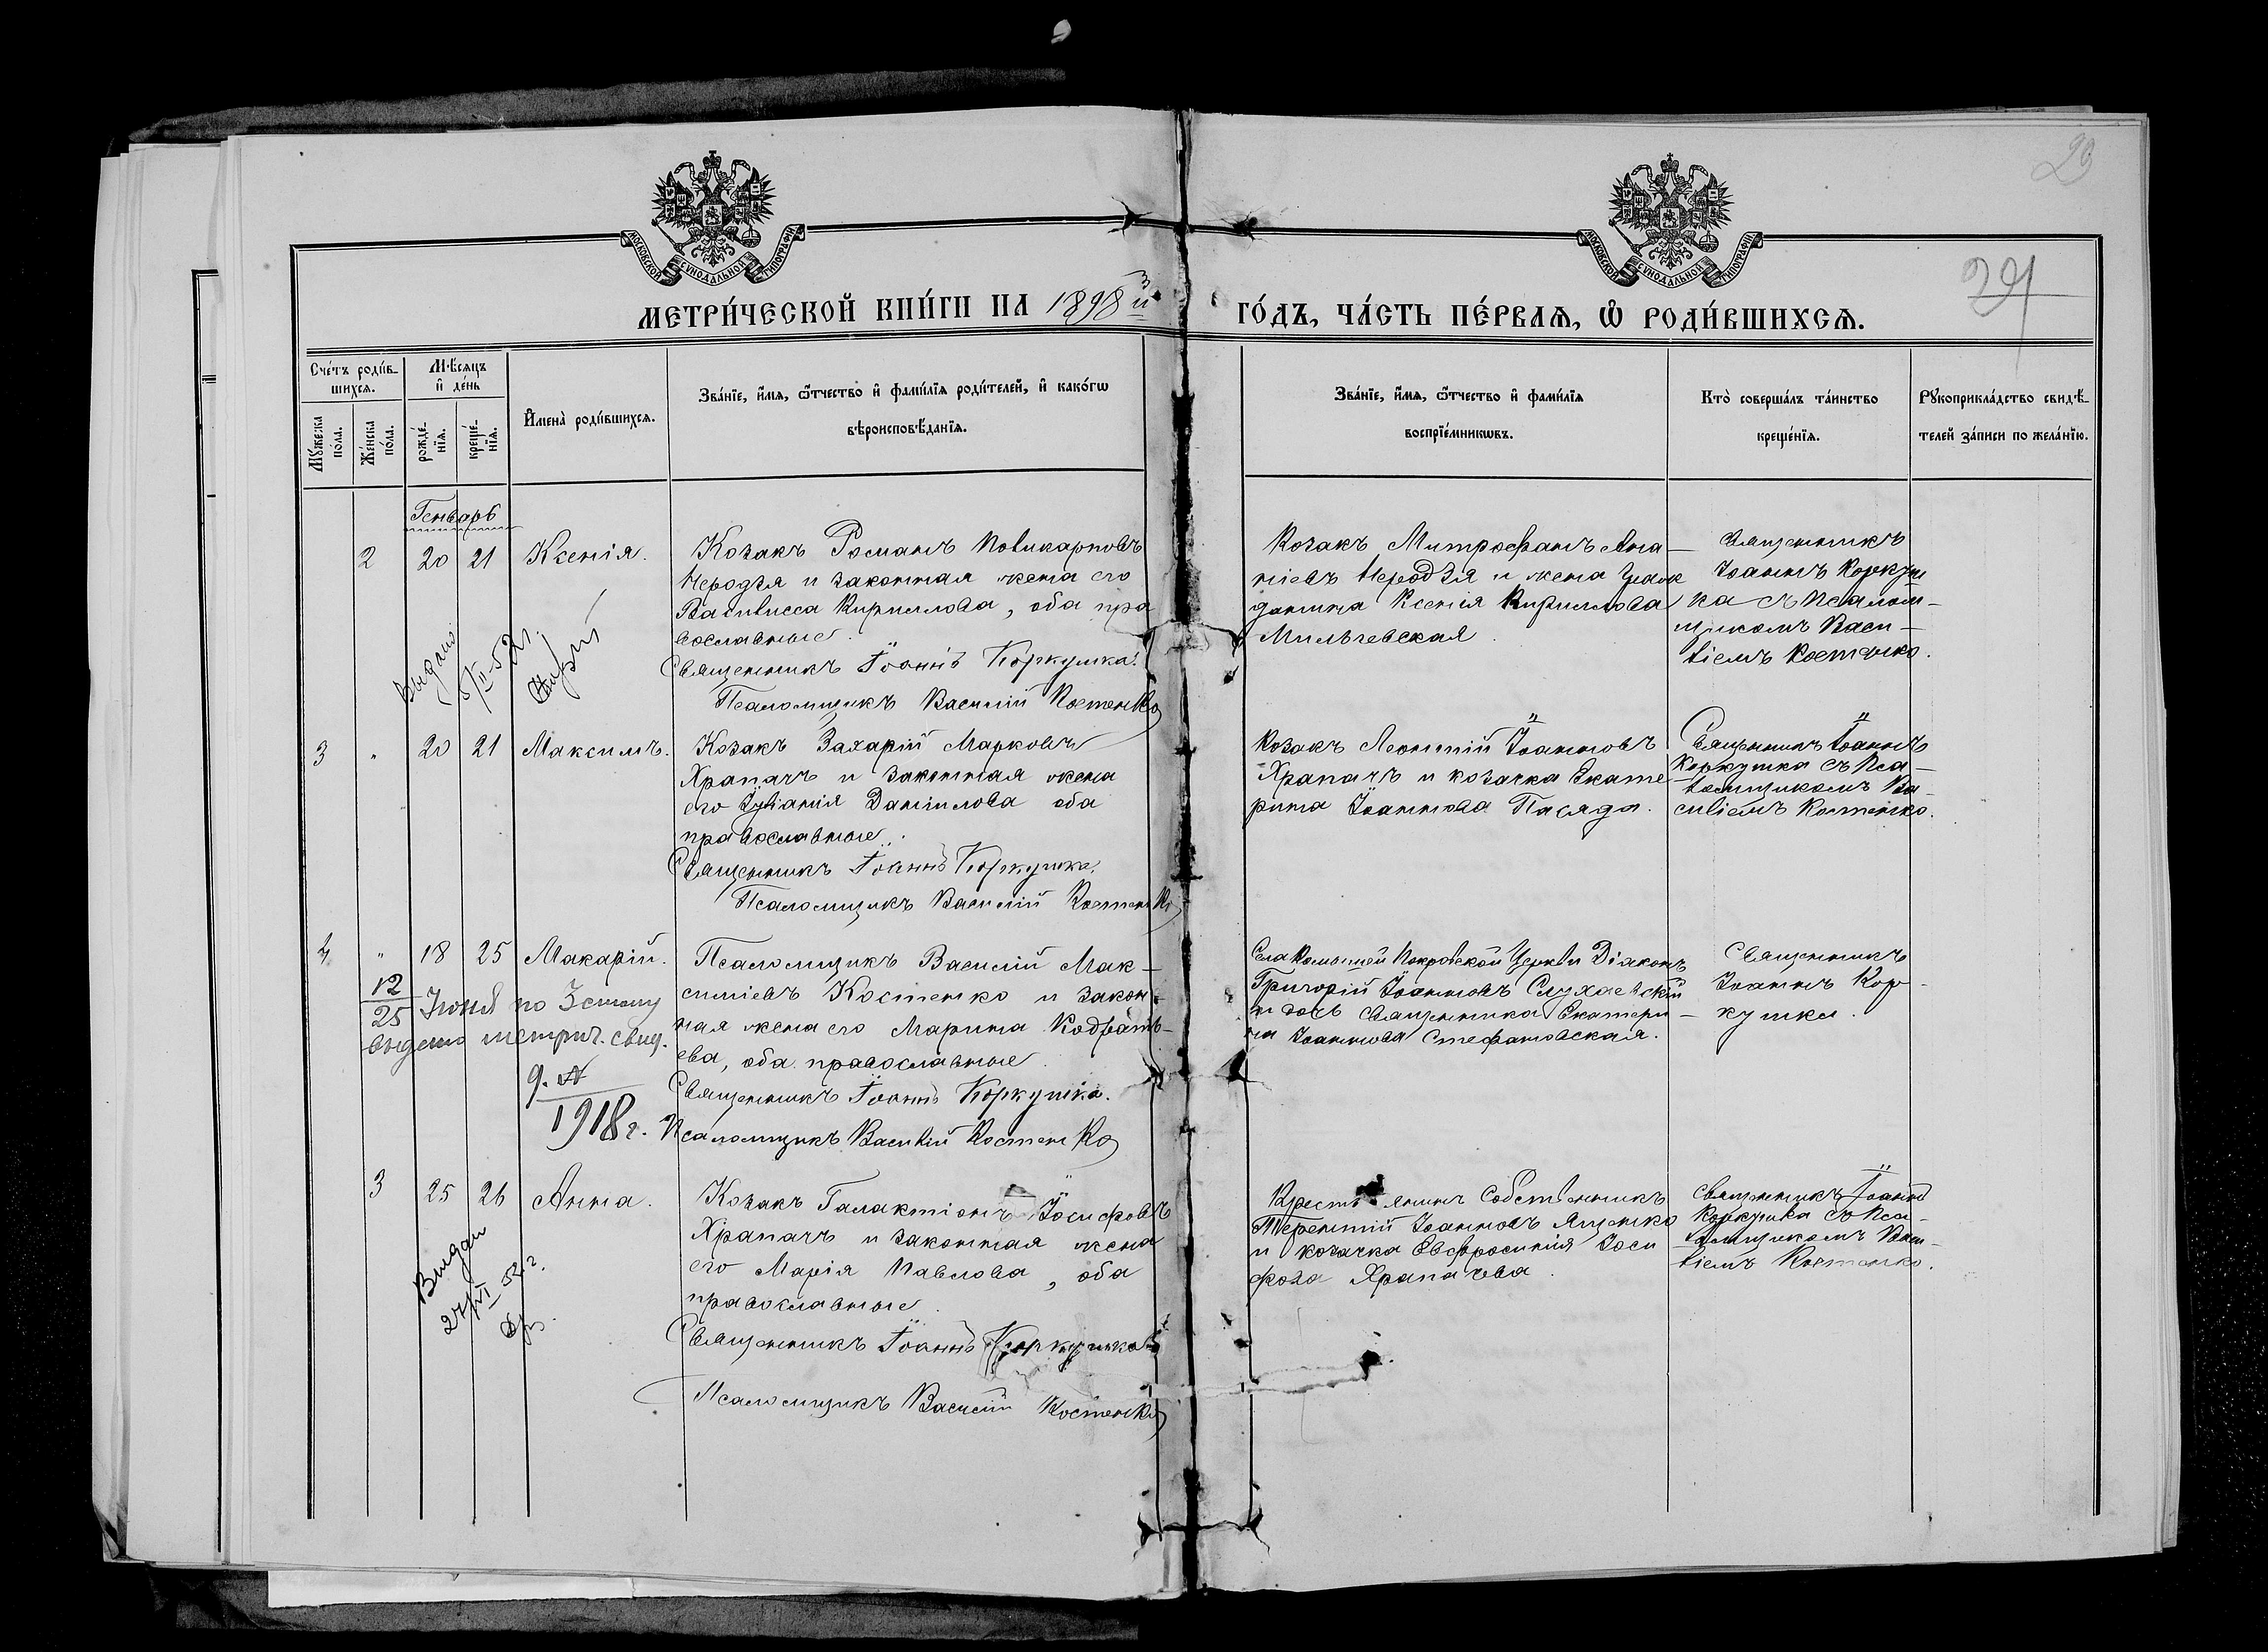 20
29
МОСКОВСКОЙ СѴНОДАЛЬНОЙ ТИПОГРАФІИ
МОСКОВСКОЙ СѴНОДАЛЬНОЙ ТИПОГРАФІИ
МЕТРИ́ЧЕСКОЙ КНИ́ГИ НА 1898й ГО́ДЪ, ЧА́СТЬ ПЕ́РВАѦ, Ѡ РОДИ́ВШИХСѦ.
Сче́тъ роди́в-
шихсѧ.
Мꙋ́жеска
по́ла.
Же́нска
по́ла.
Мѣ́сѧцъ
и҆ де́нь
рожде́-
нїѧ.
креще́-
нїѧ.
И҆мена̀ роди́вшихсѧ.
Зва́нїе, и҆́мѧ, ѻ҆́тчество и҆ фами́лїѧ роди́телей, и҆ како́гѡ
вѣроисповѣ́данїѧ.
Зва́нїе, и҆́мѧ, ѻ҆́тчество и҆ фами́лїѧ
воспрїе́мникѡвъ.
Кто̀ соверша́лъ та́инство
креще́нїѧ.
Рꙋкоприкла́дство свидѣ́-
телей за́писи по жела́нїю.
Генварь
2 20 21 Ксенія.
Козакъ Романъ Поликарповъ
Нерод𝑧я и законная жена его
Василисса Кириллова, оба пра
вославные.
Священникъ Іоаннъ Коркушка.
Псаломщикъ Василій Костенко
Козакъ Митрофанъ Ана-
ніевъ Неродзя и жена
Ксенія Кириллова
Мильчевская.
Священникъ
Іоаннъ Коркуш
ка съ псалом-
щикомъ Васи-
ліемъ Костенко.
Выдано
5/II-52г.
3 " 20 21 Максимъ.
Козакъ Захарій Марковъ
Храпачъ и законная жена
его Іуліанія Даніилова оба
православные.
Священникъ Іоаннъ Коркушка.
Псаломщикъ Василій Костенко
Козакъ Леонтій Іоанновъ
Храпачъ и козачка Екате
рина Іоаннова Паляда.
Священникъ Іоаннъ
Коркушка съ Пса-
ломщикомъ Ва-
силіемъ Костенко.
4 " 18 25 Макарій.
Псаломщикъ Василій Мак-
симіевъ Костенко и закон-
ная жена его Марина Кодрать-
ева, оба православные
Священникъ Іоаннъ Коркушка.
Псаломщикъ Василій Костенко
Села Покровской Церкви Діаконъ
Григорій Іоанновъ Слухаевскій
и дочь священника Екатери-
на Іоаннова Стефановская.
Священникъ
Іоаннъ Кор-
кушка.
12/25 Іюня по
выдано метрич. свид.
1918 г.
3 25 26 Анна.
Козакъ Галактіонъ Іосифовъ
Храпачъ и законная жена
его Марія Павлова, оба
православные.
Священникъ Іоаннъ Коркушка
Псаломщикъ Василій Костенко
Крестьянинъ Собственникъ
Терентій Іоанновъ Яценко
и козачка Евфросинія Іоси
фова Храпачева.
Священникъ Іоаннъ
Коркушка съ Пса-
ломщикомъ Васи-
ліемъ Костенко.
Выдан